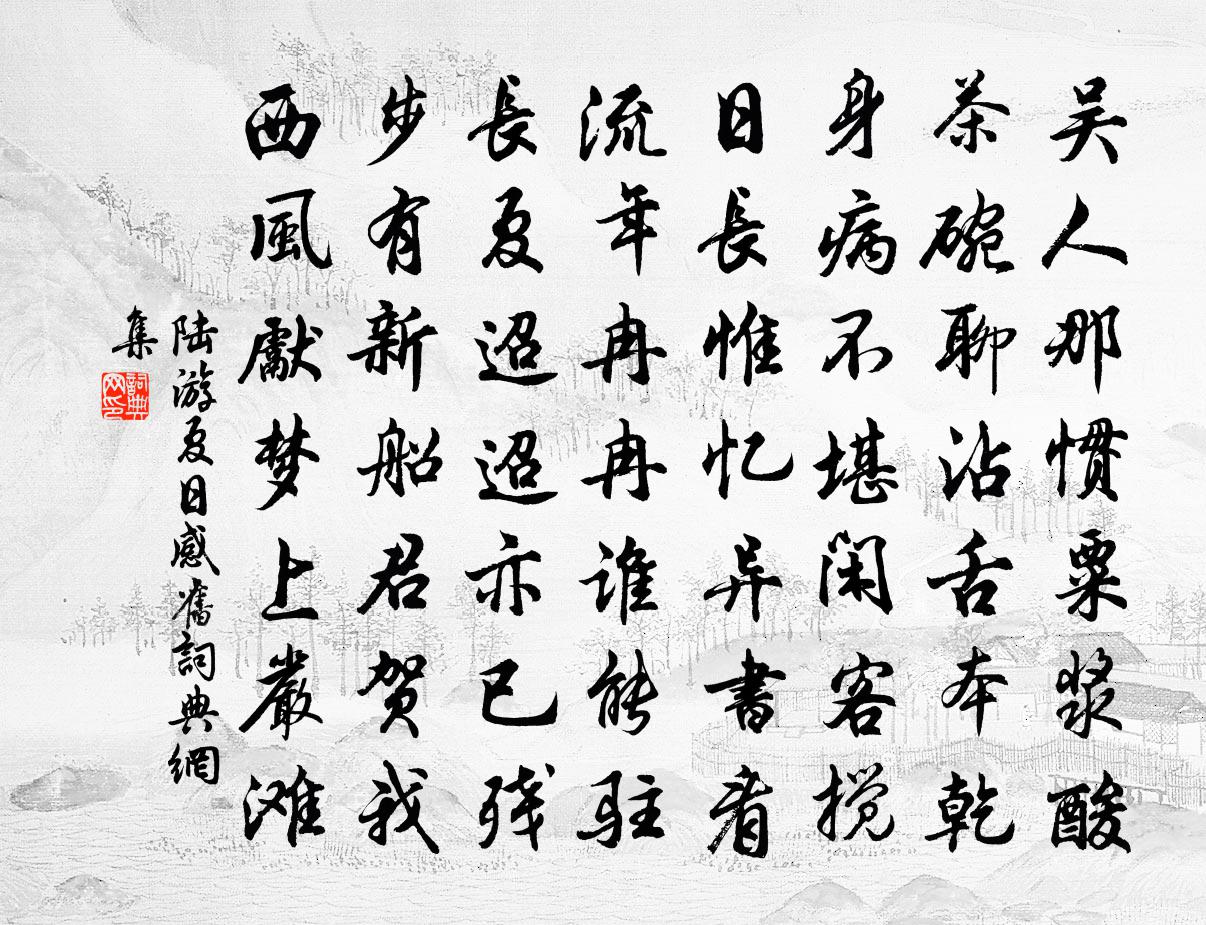 吴人那惯粟浆酸
茶碗聊沾舌本乾
身病不堪闲客搅
日长惟忆异书看
流年冉冉谁能驻
長夏迢迢亦已残
步有新船君贺我
西風獻梦上嚴滩
陆游夏日感舊詞典網
集
詞典網印